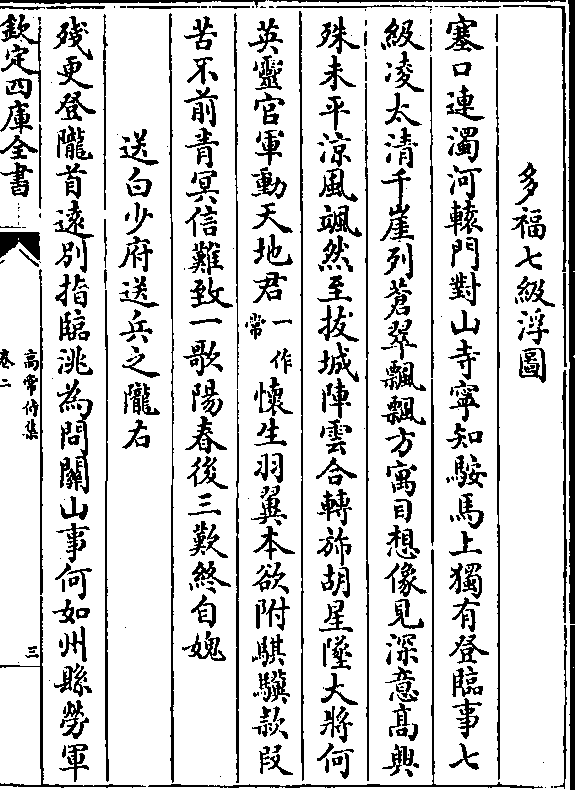 多福七級浮圖
塞口連濁河轅門對山寺寧知鞍馬上獨有登臨事七
級凌太清千崖列蒼翠飄飄方寓目想像見深意髙興
殊未平涼風颯然至拔城陣雲合轉斾胡星墜大將何
英靈官軍動天地君一作常懷生羽翼本欲附騏驥款段
苦不前青冥信難致一歌陽春後三歎終自媿
送白少府送兵之隴右
踐更登隴首逺别指臨洮為問關山事何如州縣勞軍
欽定四庫全書
髙常侍集
卷二
三